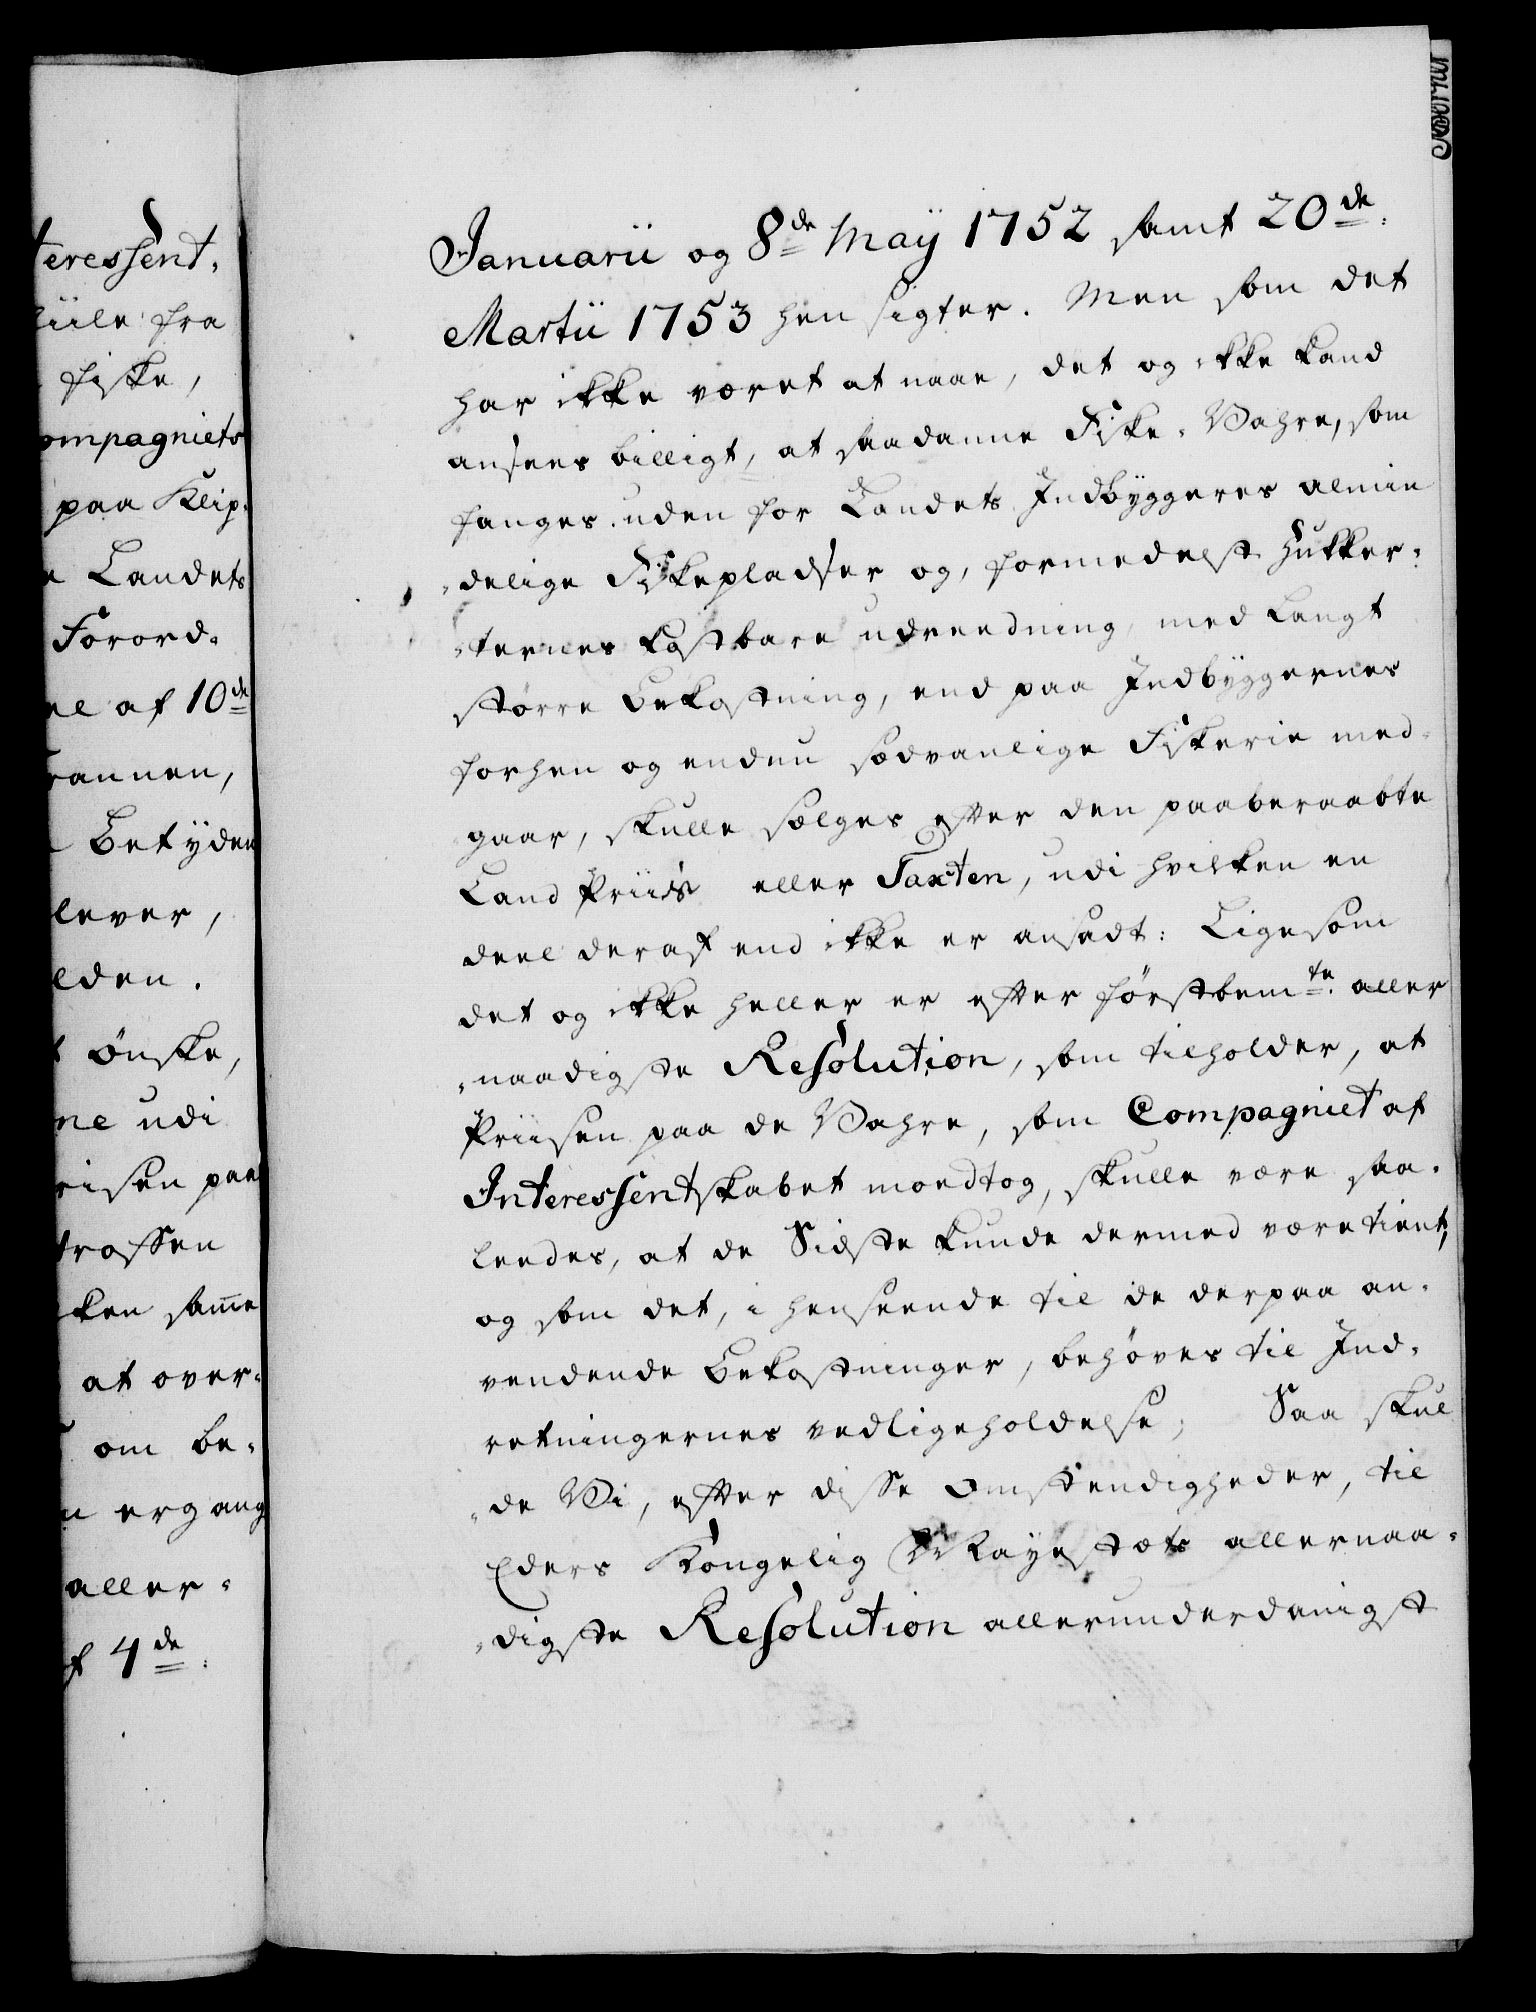 teressent,
hiile fra
fiske,
ompagniets
paa Klip-
e Landets
Forord-
ne af 10de
rannen,
Betÿden
lever,
lden.
t ønske,
ne udi
risen paa
trossen
ken same
at over-
om be-
n ergang
aller-
f 4de:
Januarii og 8de Maÿ 1752 samt 20de:
Martii 1753 hensigter. Men som det
har ikke været at naae, det og ikke kand
ansees billigt, at saadanne Fiske-Vahre, som
fanges uden for Landets Indbÿggeres almin
-delige Fiskepladser og, formedelst Hukker-
-ternes kostbare udreedning, med langt
større Bekostning, end paa Indbÿggernes
forhen og endnu sædvanlige Fiskerie med-
gaar, skulle sælges efter den paaberaabte
Land Priis eller Taxten, udi hvilken en
deel deraf end ikke er ansadt: Ligesom
det og ikke heller er efter førstbemte. aller
-naadigste Resolution, som tilholder, at
Priisen paa de Vahre, som Compagniet af
Interessentskabet moedtog, skulle være saa-
leedes, at de Sidste kunde dermed være tient,
og som det, i henseende til de derpaa an-
vendende Bekostninger, behøves til Ind-
retningernes vedligeholdelse; Saa skul
-de Vi, efter disse Omstendigheder, til
Eders Kongelig Mayestæts allernaa-
-digste Resolution allerunderdanigst